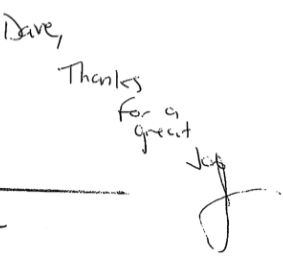 Dave,
Thanks
for a
great
Job